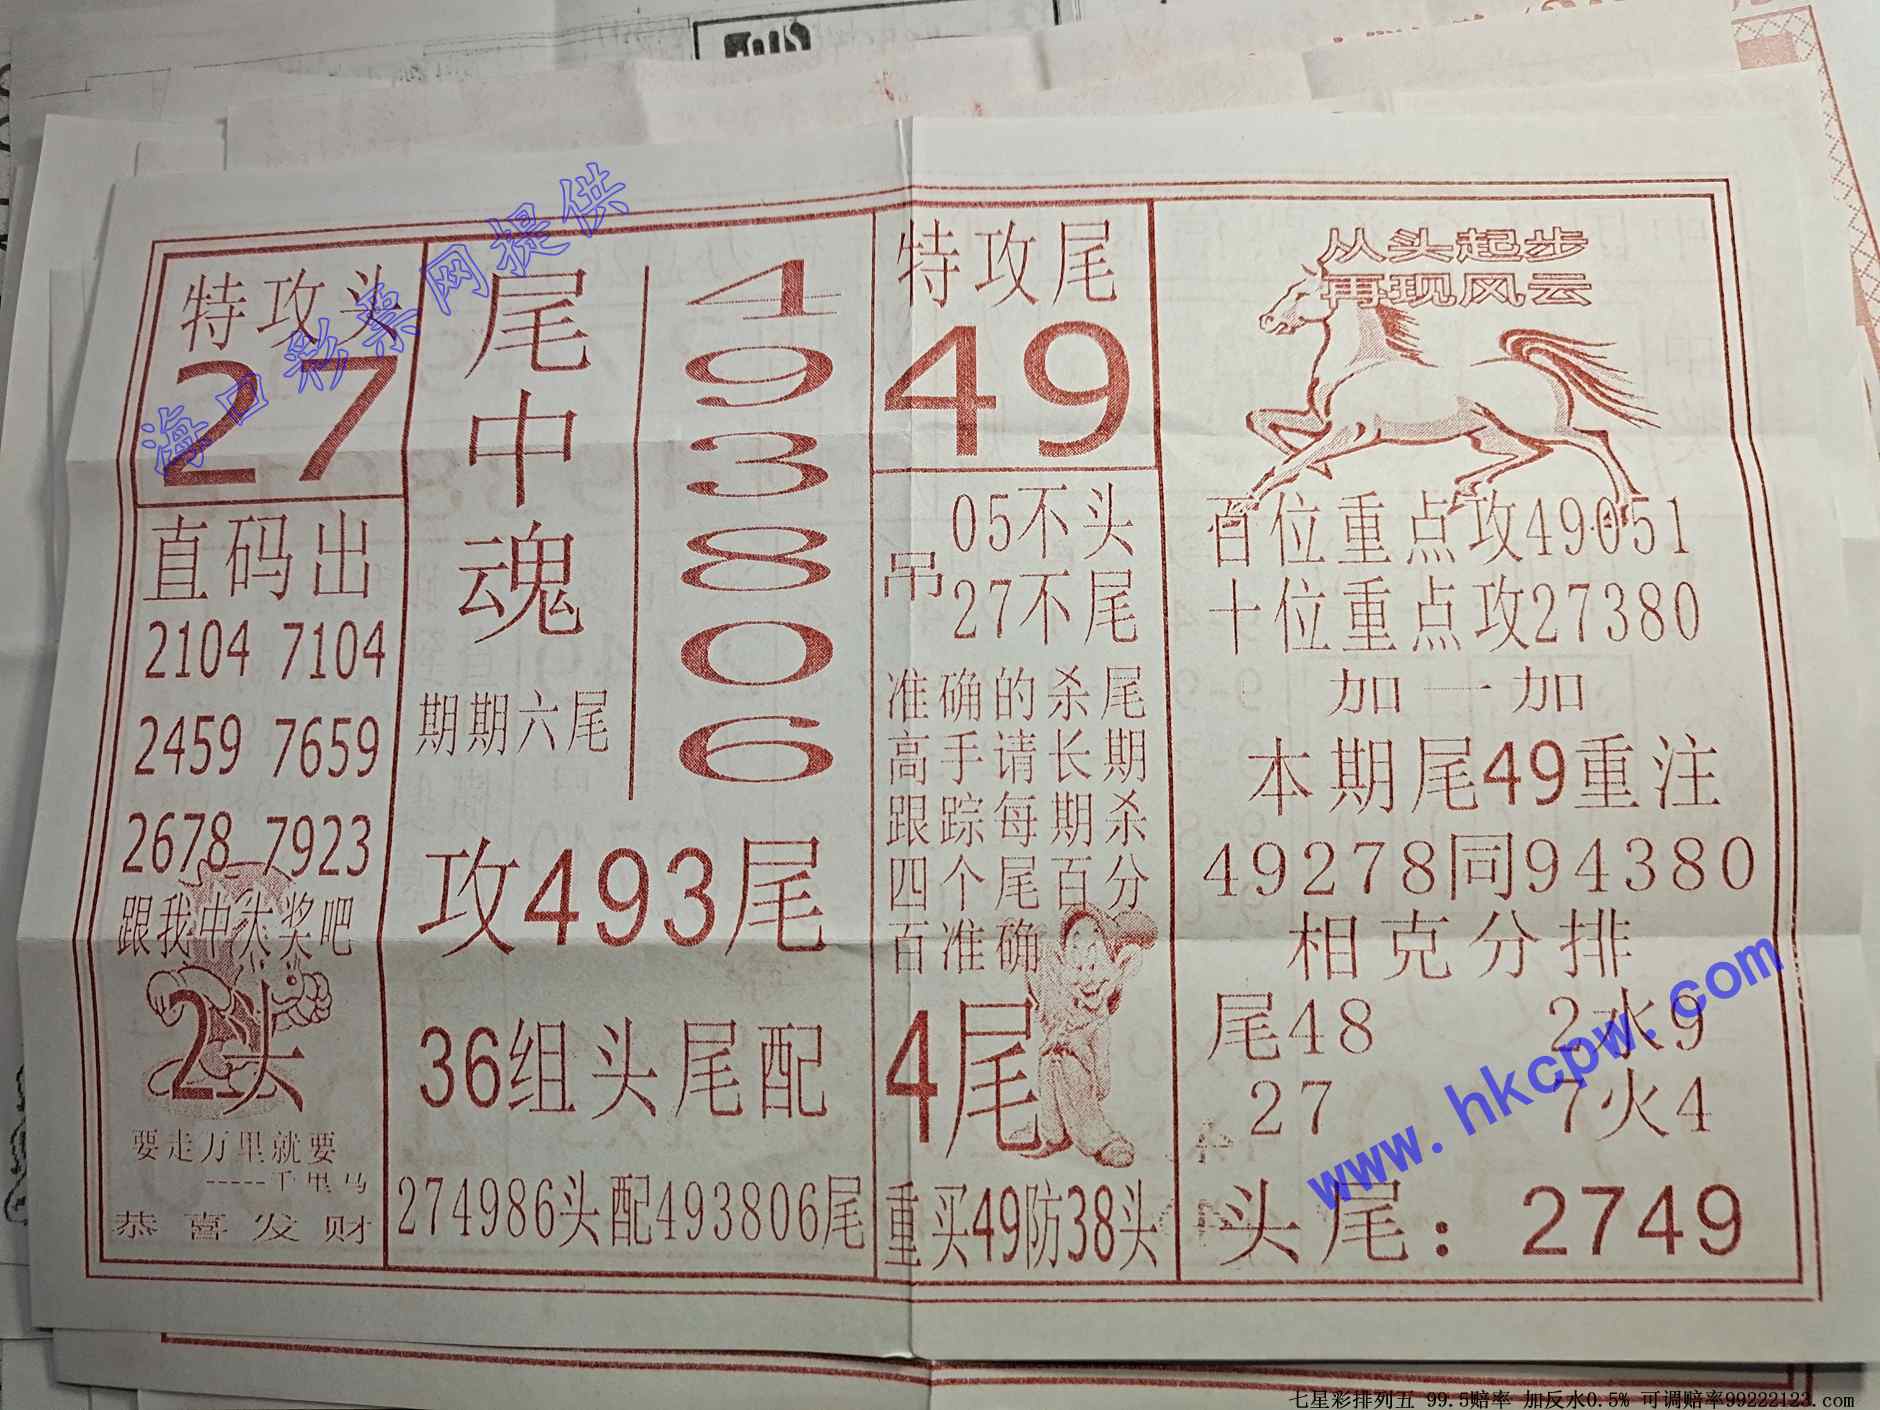 海口彩票网提供
特攻头
27
直码出
2104 7104
2459 7659
2678 7923
跟我中大奖吧
2头
要走万里就要
-----千里马
恭喜发财
尾中魂
期期六尾
4
9
3
8
0
6
攻493尾
36组头尾配
274986头配493806尾
特攻尾
49
吊
05不头
27不尾
准确的杀尾
高手请长期
跟踪每期杀
四个尾百分
百准确
4尾
重买49防38头
从头起步
再现风云
百位重点攻49051
十位重点攻27380
加一加
本期尾49重注
49278同94380
相克分排
尾48 2水9
27 7火4
头尾：2749
www.hkcpw.com
七星彩排列五 99.5赔率 加反水0.5% 可调赔率99222123.com